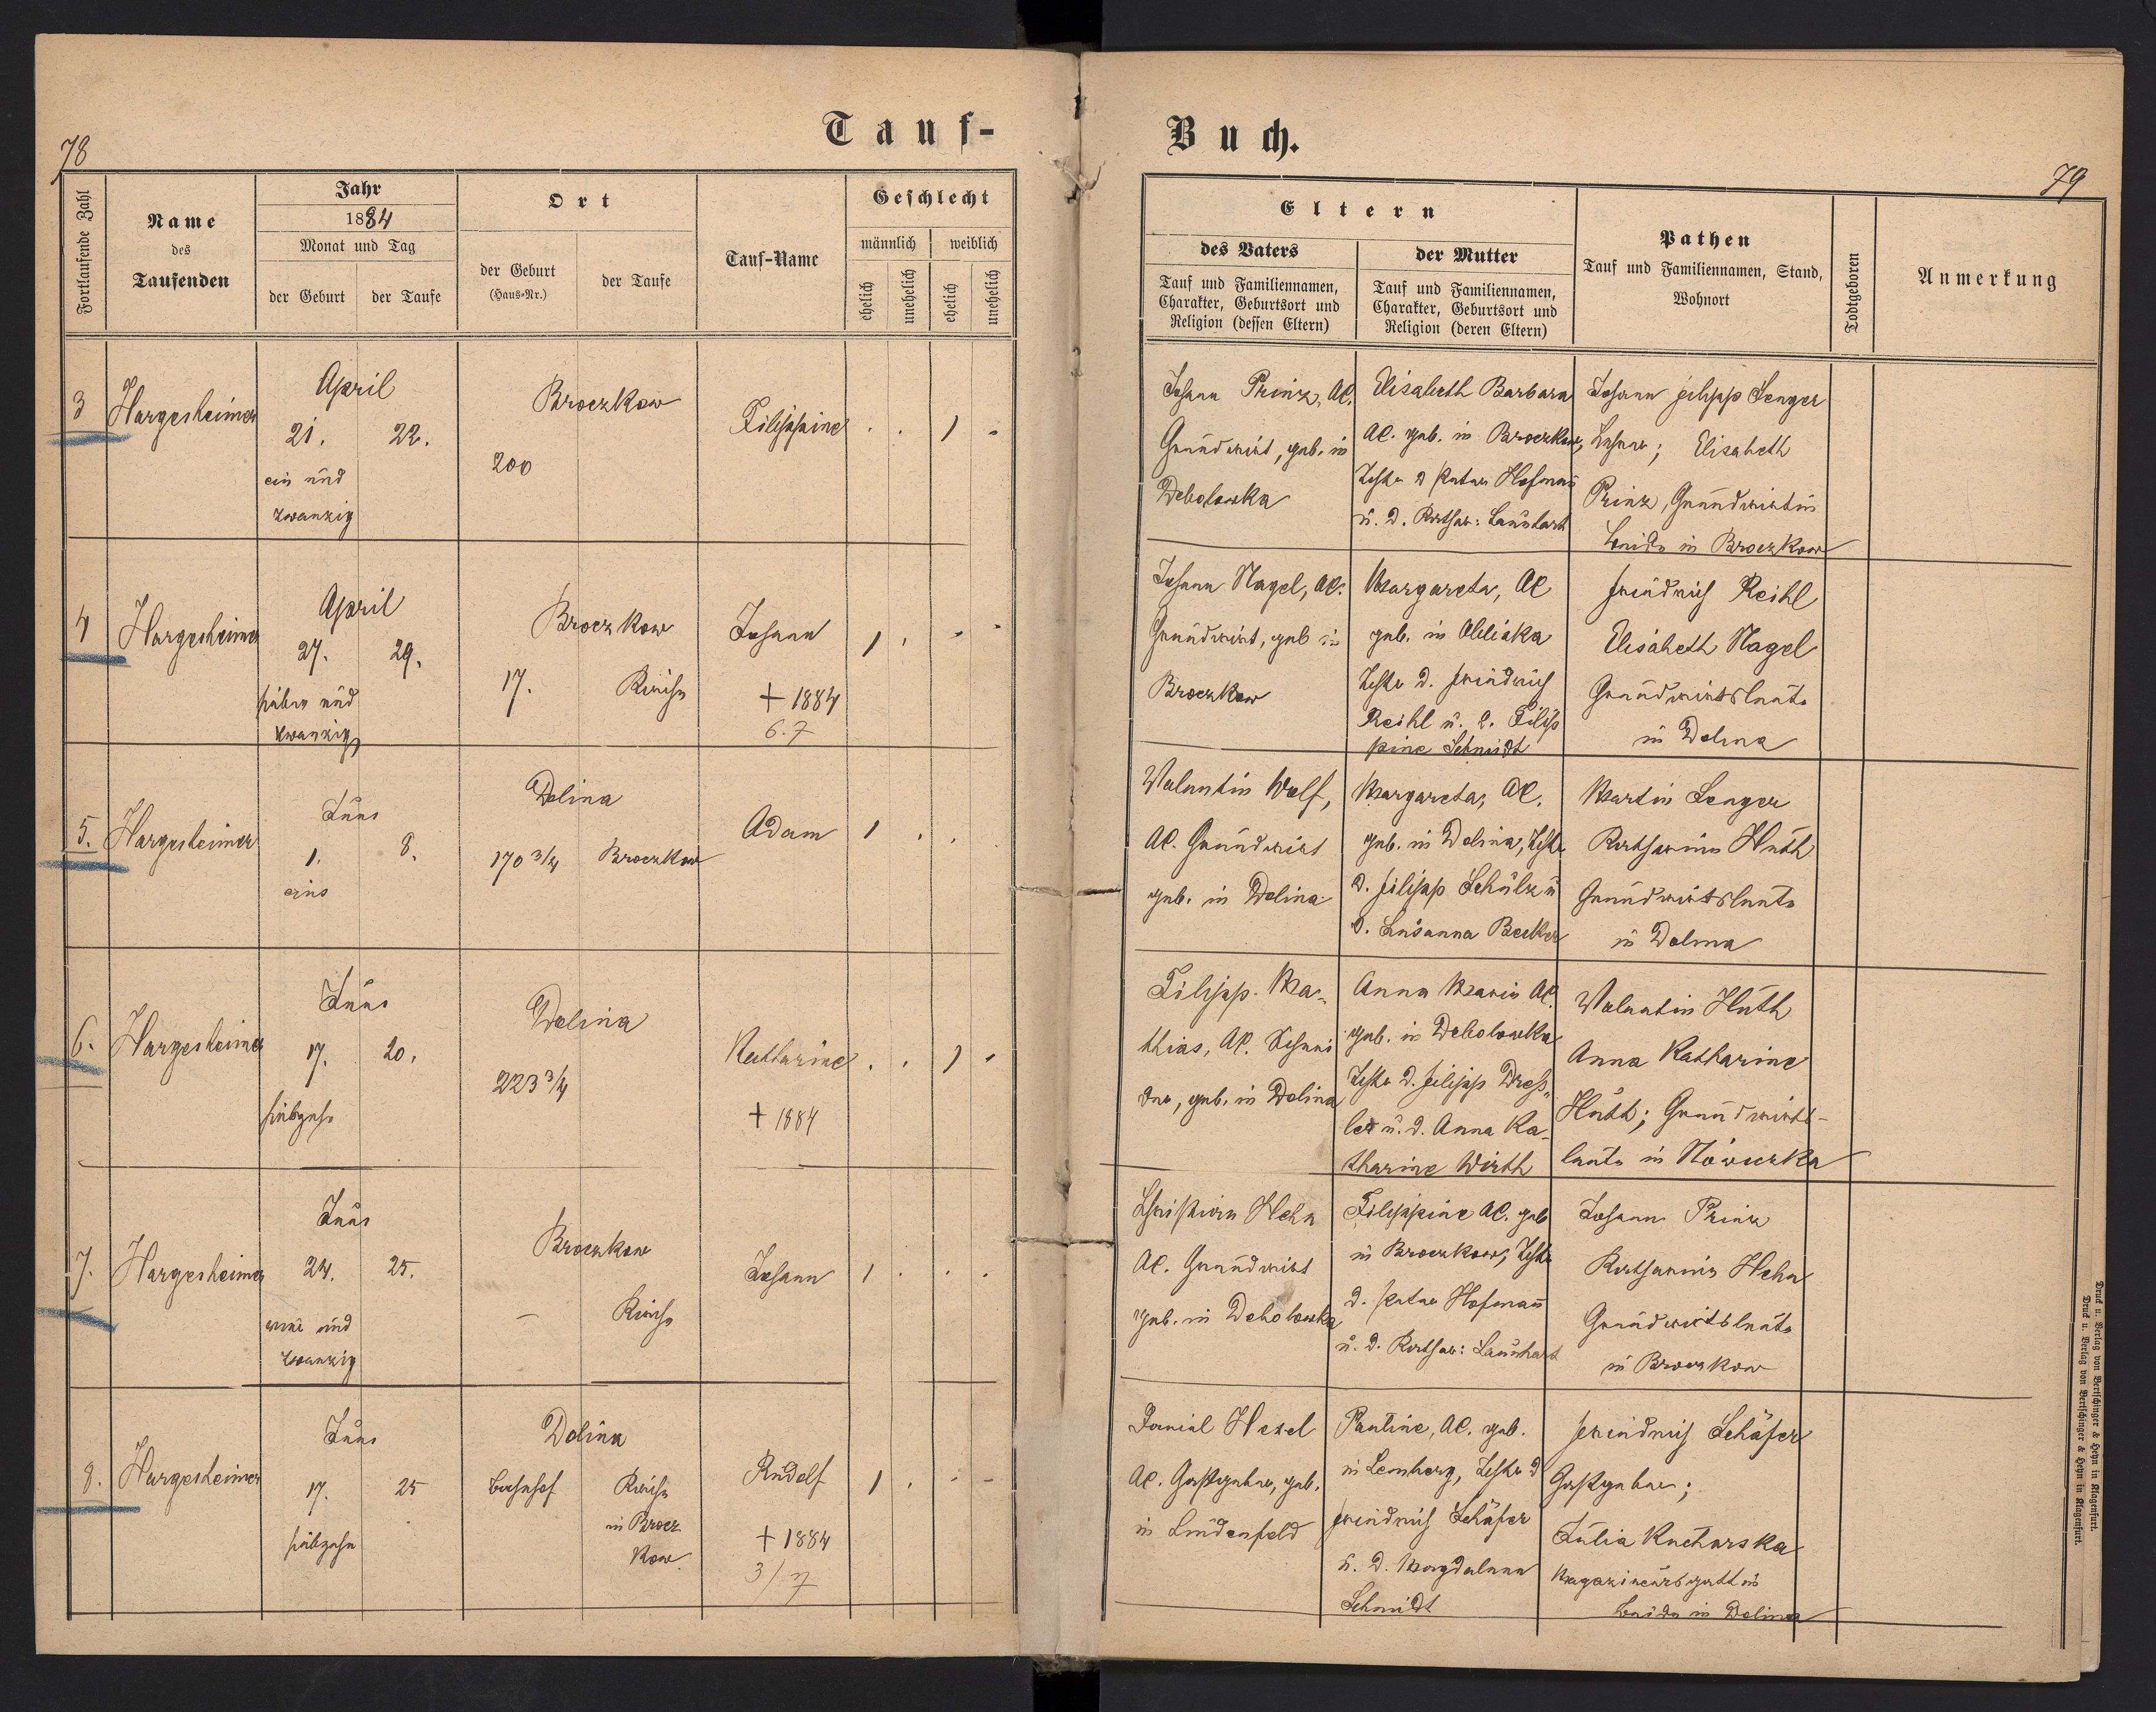 78
Tauf-
Fortlaufende Zahl
Name
des
Taufenden
Jahr
1884
Monat und Tag
der Geburt
der Taufe
Ort
der Geburt
(Haus-Nr.)
der Taufe
Tauf-Name
Geschlecht
männlich
weiblich
ehelich
unehelich
ehelich
unehelich
3
Hargesheimer
April
21. 22.
ein und
zwanzig
Broczkow
200
Filippine
. . 1 .
4
Hargesheimer
April
27. 29.
sieben und
zwanzig
Broczkow
17. Kirche
Johann
† 1884
6.7
1 . . .
5.
Hargesheimer
Juni
1. 8.
eins
Dolina
170 3/4 Broczkow
Adam
1 . .
6.
Hargesheimer
Juni
17. 20.
siebzehn
Dolina
223 3/4
Katharine
† 1884
. . 1 .
7.
Hargesheimer
Juni
24. 25.
vier und
zwanzig
Broczkow
– Kirche
Johann
1 . . .
8.
Hargesheimer
Juni
17. 25
siebzehn
Dolina
Bahnhof
Kirche
in Brocz
kow
Rudolf
† 1884
3/7
1 . - -
Buch.
79
Eltern
des Vaters
Tauf und Familiennamen,
Charakter, Geburtsort und
Religion (dessen Eltern)
der Mutter
Tauf und Familiennamen,
Charakter, Geburtsort und
Religion (deren Eltern)
Pathen
Tauf und Familiennamen, Stand,
Wohnort
Todtgeboren
Anmerkung
Johann Prinz, AC.
Grundwirt, geb. in
Debolowka
Elisabeth Barbara
AC. geb. in Broczkow,
Tochter d Peter Hofmañ
u. d. Kathar: Launhart
Johann Filipp Senger
Lehrer; Elisabeth
Prinz, Grundwirtin
beide in Broczkow
Johann Nagel, AC.
Grundwirt, geb in
Broczkow
Margareta, AC
geb. in
Tochter d. Friedrich
Reihl u. d. Filip
pine Schmidt
Friedrich Reihl
Elisabeth Nagel
Grundwirtsleute
in Dolina
Valentin Wolf,
AC. Grundwirt
geb. in Dolina
Margareta, AC.
geb. in Dolina, Tochter
d. Filipp Schülz u
d. Susanna Becker
Martin Senger
Katharina Huth
Grundwirtsleute
in Dolina
Filipp. Ma-
thias, AC.
der, geb. in Dolina
Anna Maria AC.
geb. in Debolowka
Tochter d. Filipp Dreß-
ler u. d. Anna Ka-
tharine Wirth
Valentin Huth
Anna Katharine
Huth; Grundwirts-
leute in Nowiczka
Christian Hehn
AC. Grundwirt
geb. in Debolowka
Filippine AC. geb
in Broczkow, Tochter
d. Peter Hofmañ
u. d. Kathar: Launhart
Johann Prinz
Katharina Hehn
Grundwirtsleute
in Broczkow
Daniel Hexel
AC. Gastgeber, geb.
in Lindenfeld
Pauline, AC. geb.
in Lemberg, Tochter d
Friedrich Schäfer
u. d. Magdalena
Schmidt
Friedrich Schäfer
Gastgeber;
Julia Kucharska
Magazineursgattin
beide in Dolina
Druck u. Verlag von Bertschinger & Heyn in Klagenfurt.
Druck u. Verlag von Bertschinger & Heyn in Klagenfurt.